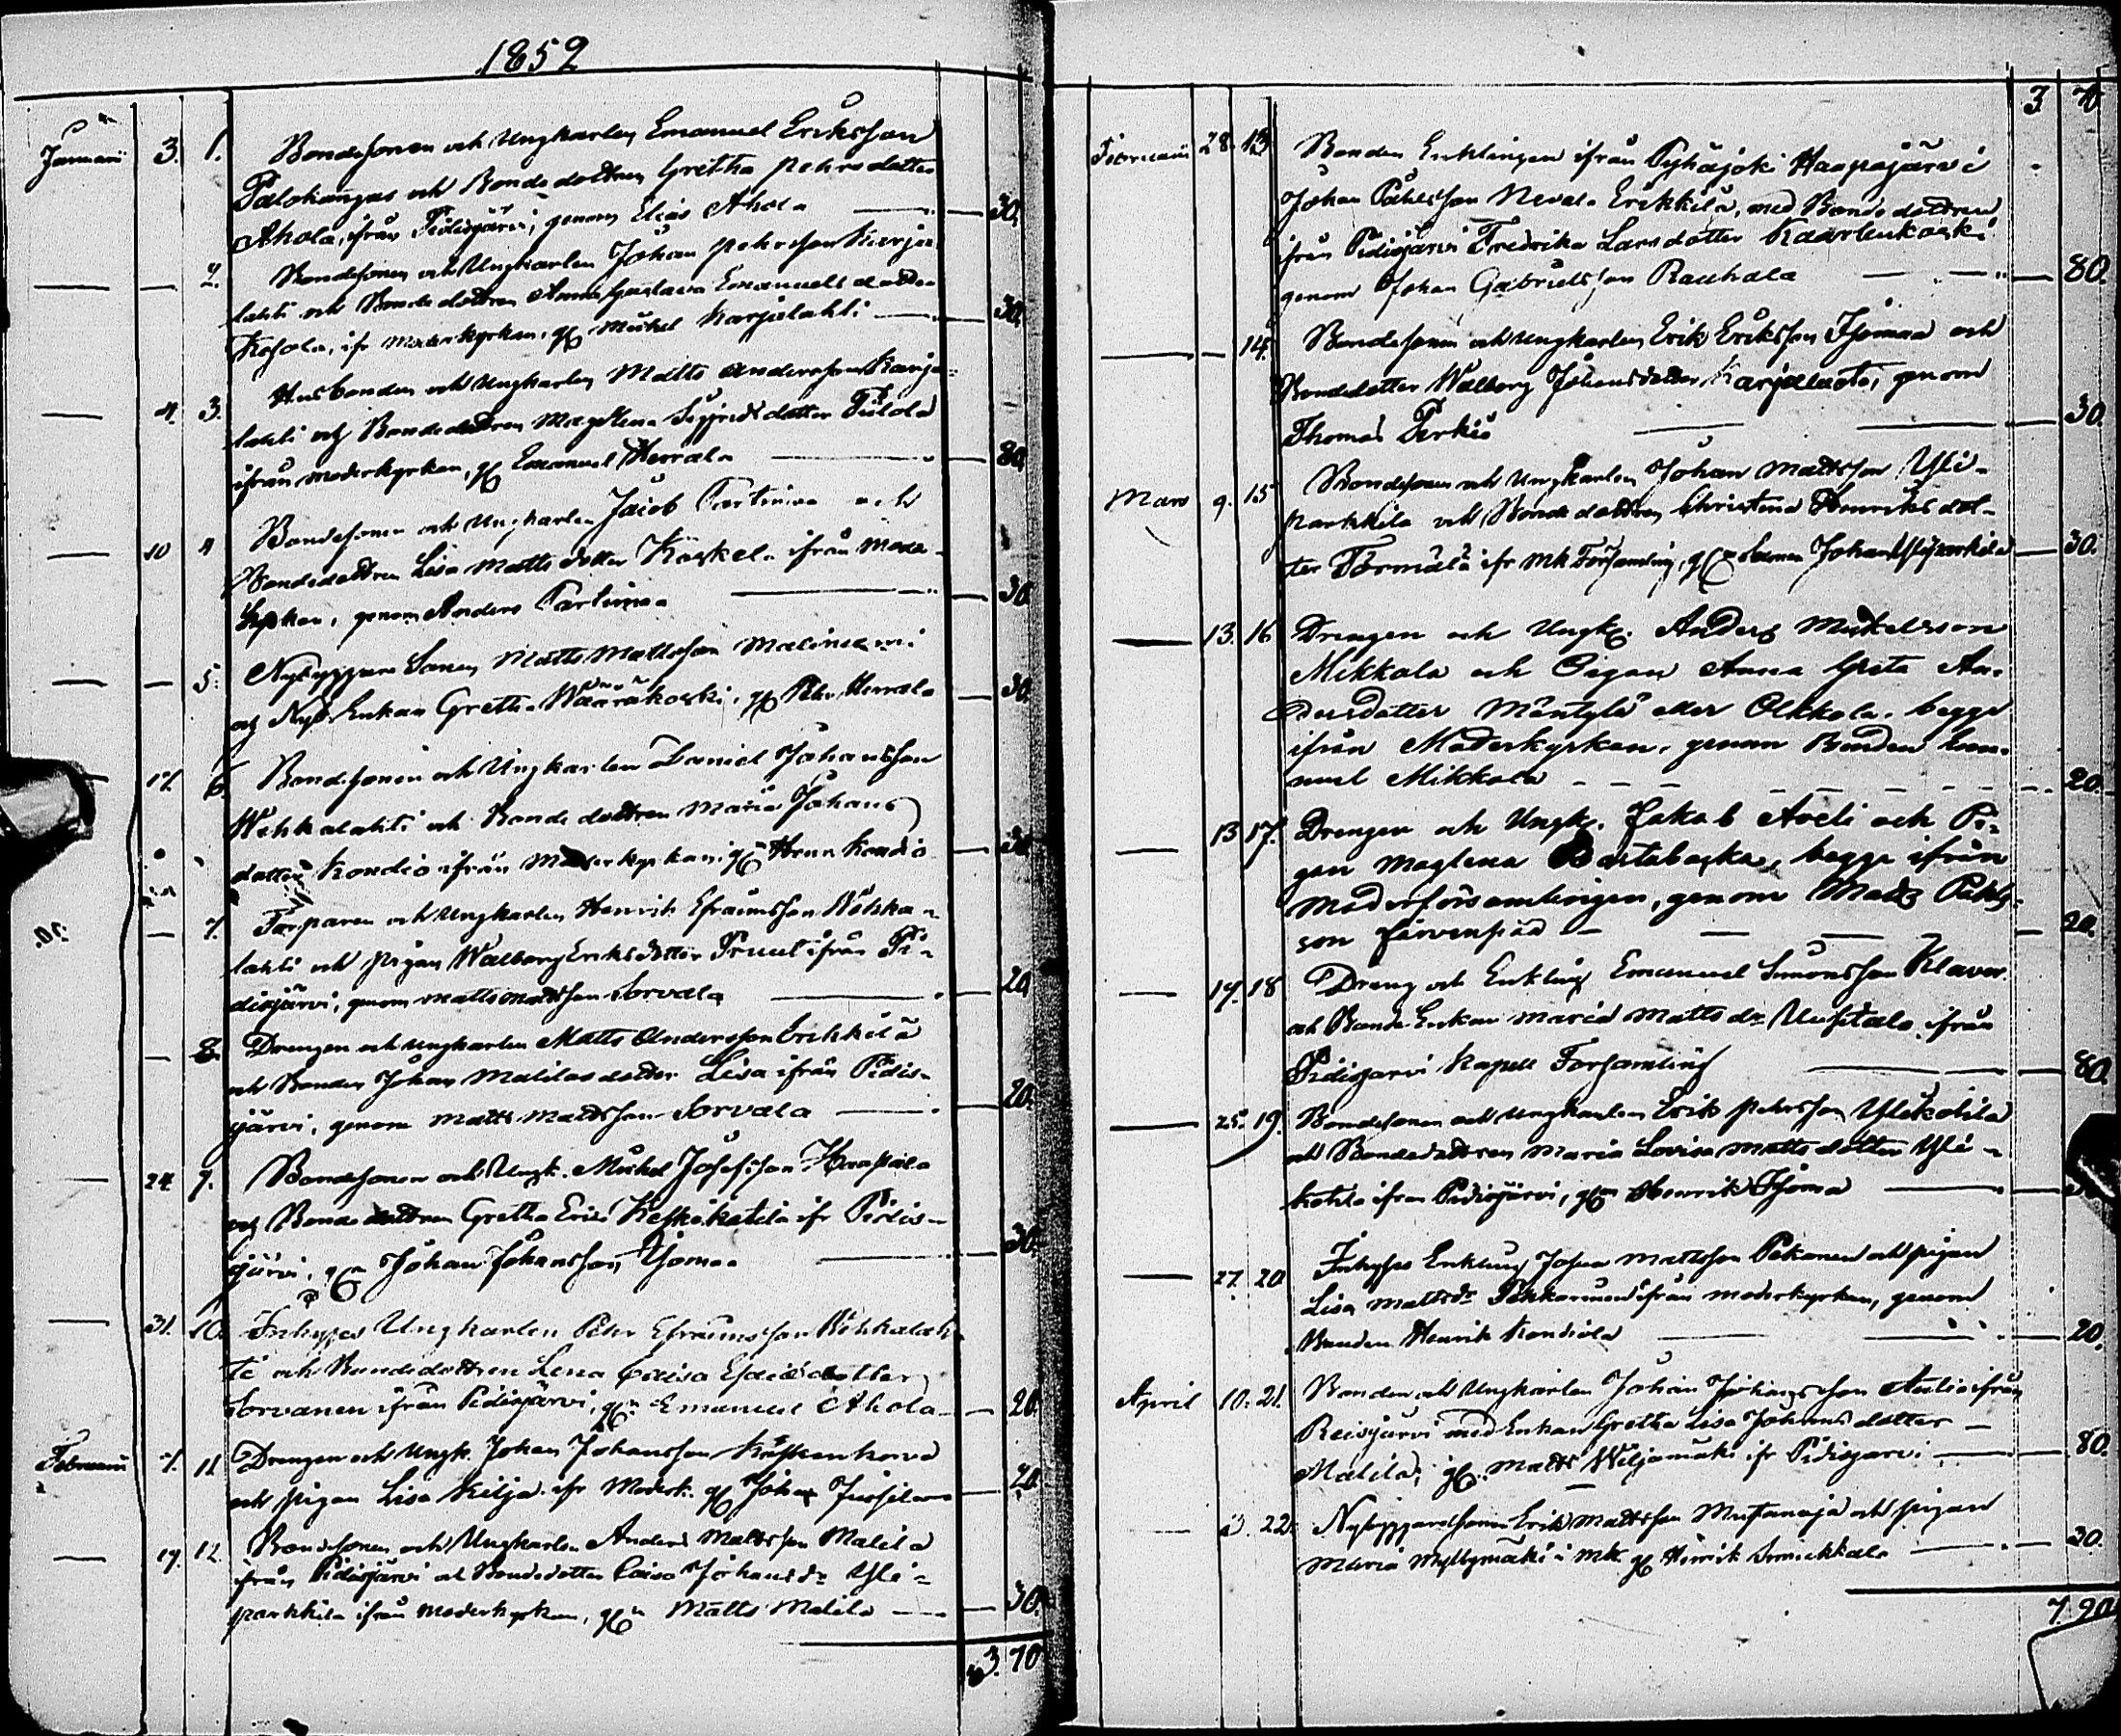 1852
Januari 3. 1. Bondesonen och Ungkarlen Emanuel Eriksson
Palokangas och Bondedottren Gretha Pehrsdotter
Ahola, ifrån Pidisjärvi, genom Elias Ahola — 30.
— — 2. Bondesonen och Ungkarlen Johan Pehrsson Karja
lahti och Bondedottren Anna Gustava Emanuelsdotter
Kesola, ifr Moderkyrkan, gm Mickel Karjalahti — 30.
— 4. 3. Husbonden och Ungkarlen Matts Andersson Karja-
lahti och Bondedottren Magdlena Sigfridsdotter Pilola
ifrån Moderkyrkan, gm Emanuel Herrala — 80.
— 10 4 Bondesonen och Ungkarlen Jacob Partimaa och
Bondedottren Lisa Mattsdotter Köskela ifrån Moder-
kyrkan, genom Anders Partimaa — 30.
— — 5. Nybyggare Sonen Matts Mattsson Maliniemi
och Nyb. Enkan Gretha Wääräkoski, gm Pehr Herrala — 30.
17. 6. Bondesonen och Ungkarlen Daniel Johansson
Wehkalahti och Bondedottren Maria Johans
dotter Kondio ifrån Moderkyrkan, gm Henr Kondio — 30
— 7. Torparen och Ungkarlen Henrik Efraimsson Wehka-
lahti och pigan Walborg Eriksdotter Pruut ifrån Pi-
disjärvi, genom Matts Mattsson Sorvala — 20
— 8. Drengen och Ungkarlen Matts Andersson Erikkilä
och Bonden Johan Malilas dotter Lisa ifrån Pidis-
järvi, genom Matts Mattsson Sorvala — 20.
— 24. 9. Bondesonen och Ungk. Mickel Josefsson Haapala
och Bondedottren Gretha Eriks Keskikatila ifr Pidis-
järvi, gm Johan Johansson Isomaa — 30.
— 31. 10. Inhyses Ungkarlen Peter Efraimsson Wehkalah-
ti och Bondedottren Lena Caisa Esaiædotter
Sorvanen ifrån Pidisjärvi, gm Emanuel Ahola — 20.
Februari 7. 11 Drengen och Ungk. Johan Johansson Koskenkorva
och pigan Lisa Kilja ifr Moderk. gm Johan Jussila — 20.
— 19. 12. Bondesonen och Ungkarlen Anders Mattsson Malila
ifrån Pidisjärvi och Bondedotter Caisa Johansdr Yli-
parkkila ifrån Moderkyrkan, gm Matts Malila — 30.
3. 70
3 70
Februari 28. 13 Bonden Enklingen ifrån Pyhäjoki Haapajärvi
Johan Påhlsson Nevala Erikkilä, med Bondedottren
ifrån Pidisjärvi Fredrika Larsdotter Kaarlenkoski
genom Johan Gabrielsson Rauhala — 80.
— — 14. Bondesonen och Ungkarlen Erik Eriksson Isomaa och
Bondedotter Walborg Johansdotter Karjalasto, genom
Thomas Perkiö — 30.
Mars 9. 15 Bondesonen och Ungkarlen Johan Mattsson Yli-
parkkila och Bondedottren Christina Henriksdot-
ter Törmälä ifr Mk Församling, gm Johan Yliparkkila — 30.
— 13. 16 Drengen och Ungk. Anders Mickelsson
Mikkola och Pigan Anna Greta An-
dersdotter Mäntylä eller Olkkola, begge
ifrån Moderkyrkan, genom Bonden Ema-
nuel Mikkola — 20.
— 13 17. Drengen och Ungk. Jakob Aveli och Pi-
gan Maglena Bastabacka, begge ifrån
Moderförsamlingen, genom Matts Påhls-
son Järvenpää — 20.
— 19. 18 Dreng och Enkling Emanuel Simonsson Klaver
och Bonde Enkan Maria Mattsdr Uusitalo, ifrån
Pidisjarvi Kapell Forsamling — 80.
— 25. 19. Bondesonen och Ungkarlen Erik Pehrsson Ylikotila
och Bondedottren Maria Lovisa Mattsdotter Yli-
kotila ifrån Pidisjärvi, gm Henrik Isomaa — 30
— 27. 20 Inhyses Enkling Johan Mattsson Pekonen och pigan
Lisa Mattsdr Pekkarinen ifrån moderkyrkan, genom
Bonden Henrik Kondiola — 20.
April 10. 21. Bonden och Ungkarlen Johan Johansson Antio ifrån
Reisjärvi med Enkan Gretha Lisa Johansdotter
Malila, gm Matts Wiljamäki ifr Pidisjarvi — 80.
— 22. Nybyggaresonen Erik Mattsson Mustanoja och pigan
Maria Myllymäki i Mk. gm Henrik — 20.
7. 90